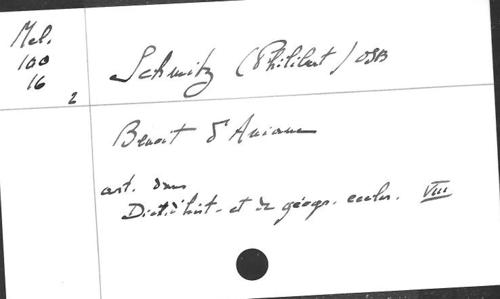 Mel.
100
16
2
Schmitz (Philibert) OSB
Benoit d'Aniane
art. dans
Dict. d'hist. et de géogr. eccles. VIII